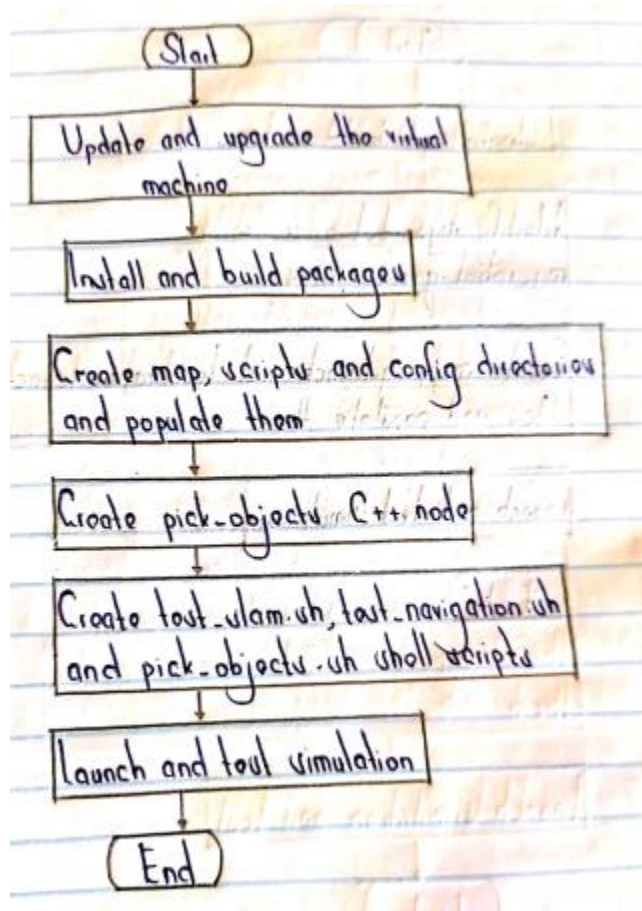 Start
Update and upgrade the virtual
machine
Install and build packages
Create map, scripts and config directories
and populate them
Create pick_objects C++ node
Create test_slam.sh, test_navigation.sh
and pick_objects.sh shell scripts
Launch and test simulation
End